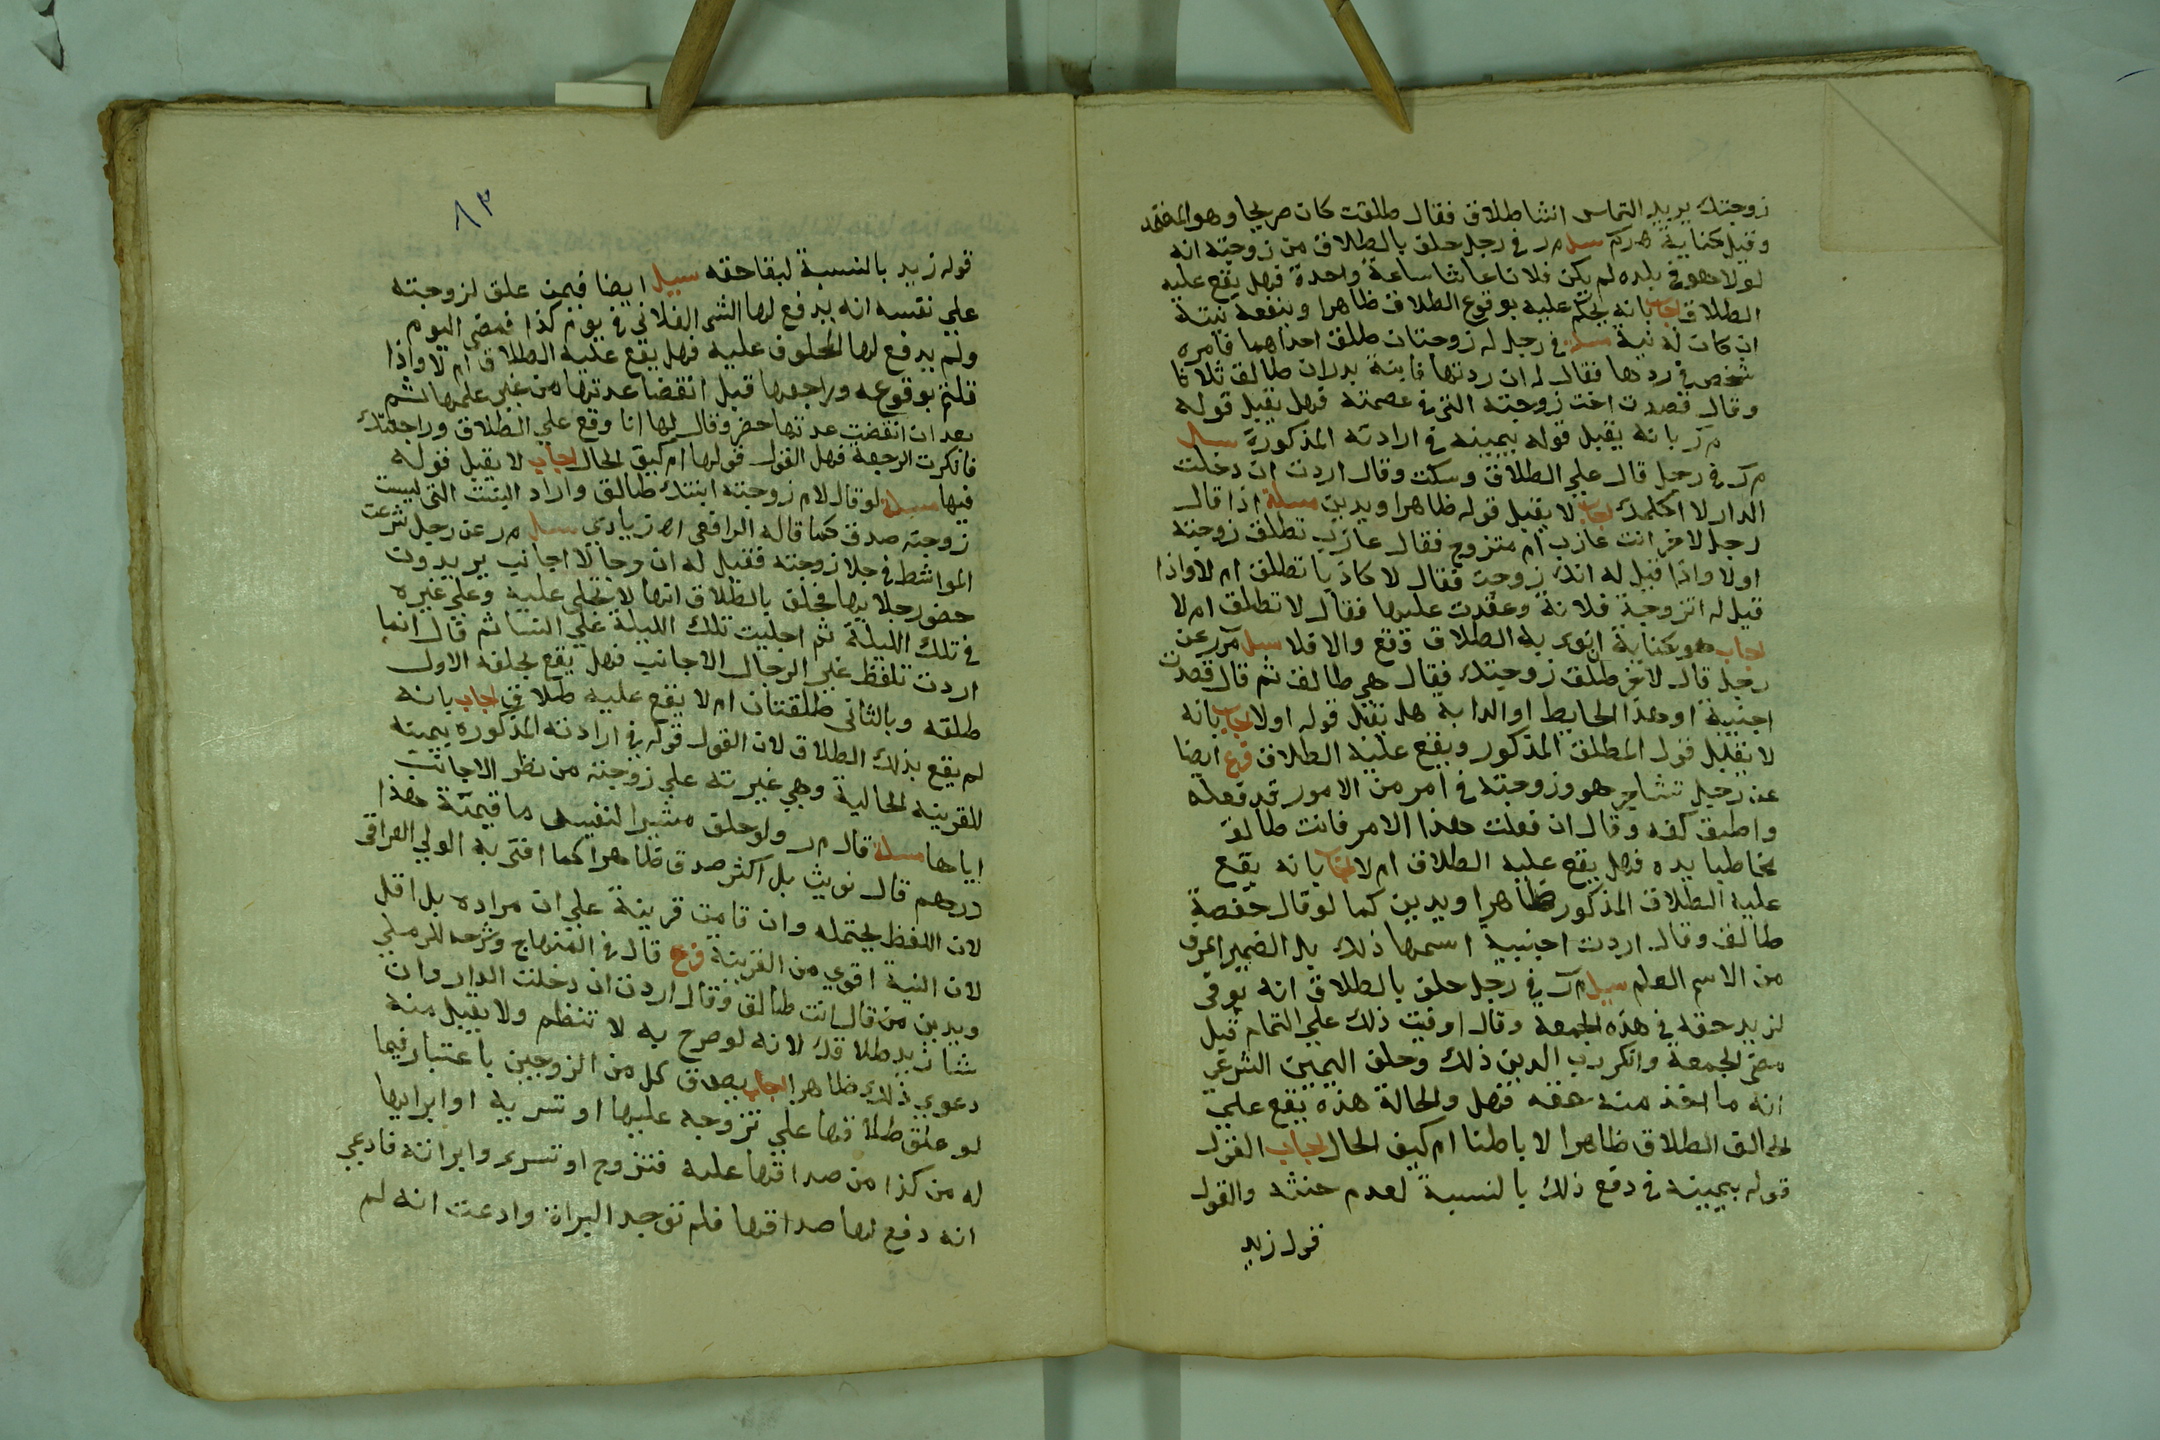 زوجتك يريد التماس انشا طلاق فقال طلقت كان صريحا وهو المعتمد
وقيل كناية سيل م ر في رجل حلق بالطلاق من زوجته انه
لولا هو في بلده لم يكن فلانا عاشا ساعة واحدة فهل يقع عليه
الطلاق اجاب بانه يحكم عليه بوقوع الطلاق ظاهرا وينفعه نيته
ان كان له نية سيل في رجل له زوجتان طلق احداهما فامره
شخص في ردها فقال له ان ردتها فاينة بدران طالق ثلاثا
وقال قصدت اخت زوجته التي في عصمته فهل يقبل قوله
م ر بانه يقبل قوله بيمينه في ارادته المذكورة سيل
م ر في رجل قال علي الطلاق وسكت وقال اردت ان دخلت
الدار لا اكلمك اجاب لا يقبل قوله ظاهرا ويدين مسلة اذا قال
رجل لاخر انت عازب ام متزوج فقال عازب تطلق زوجته
اولا واذا قيل له انك زوجت فقال لا كاذبا تطلق ام لا واذا
قيل له اتزوجة فلانة وعقدت عليها فقال لا تطلق ام لا
اجاب هو كناية ان نوى به الطلاق وقع والا فلا سيل م ر عن
رجل قال لاخر طلق زوجتك فقال هي طالق ثم قال قصدت
اجنبية او هذا الحايط او الدابة هل يقبل قوله اولا اجاب بانه
لا يقبل قول المطلق المذكور ويقع عليه الطلاق فرع ايضا
عن رجل تشاجر هو وزوجته في امر من الامور قد فعله
واطبق كفه وقال ان فعلت هذا الامر فانت طالق
مخاطبا يده فهل يقع عليه الطلاق ام لا اجاب بانه يقع
عليه الطلاق المذكور ظاهرا ويدين كما لو قال حفصة
طالق وقال اردت اجنبية اسمها ذلك بل الضمير اعرف
من الاسم العلم سيل م ر في رجل حلق بالطلاق انه يوفى
لزيد حقه في هذه الجمعة وقال اوفيت ذلك علي التمام قبل
مضى الجمعة وانكر رب الدين ذلك وحلق اليمين الشرعي
انه ما اخذ منه حقه فهل والحالة هذه يقع علي
الحالق الطلاق ظاهرا لا باطنا ام كيف الحال اجاب القول
قوله بيمينه في دفع ذلك بالنسبة لعدم حنثه والقول
قول زيد
٨٣
قوله زيد بالنسبة لبقا حقه سيل ايضا فيمن علق لزوجته
علي نفسه انه يدفع لها الشي الفلاني في يوم كذا فمضى اليوم
ولم يدفع لها المحلوف عليه فهل يقع عليه الطلاق ام لا واذا
قلتم بوقوعه وراجعها قبل انقضا عدتها من غير علمها ثم
بعد ان انقضت عدتها حضر وقال لها انا وقع علي الطلاق وراجعتك
فانكرت الرجعة فهل القول قولها ام كيف الحال اجاب لا يقبل قوله
فيها مسلة لو قال لام زوجته ابنتك طالق واراد البنت التي ليست
زوجته صدق كما قاله الرافعي اه زيادي سيل م ر عن رجل شرعت
المواشط في جلا زوجته فقيل له ان رجالا اجانب يريدون
حضور جلايها فحلق بالطلاق انها لا تجلى عليه وعلي غيره
في تلك الليلة ثم اجليت تلك الليلة علي النسا ثم قال انما
اردت تلفظ علي الرجال الاجانب فهل يقع بحلفه الاول
طلقه وبالثاني طلقتان ام لا يقع عليه طلاق اجاب بانه
لم يقع بذلك الطلاق لان القول قوله في ارادته المذكوره بيمينه
للقرينه الحالية وهي غيرته علي زوجته من نظر الاجانب
اياها مسلة قال م ر ولو حلق مشيرا لنفيس ما قيمة هذا
درهم قال نويت بل اكثر صدق ظاهرا كما افتى به الولي العراقي
لان اللفظ يحتمله وان قامت قرينة علي ان مراده بل اقل
لان النية اقوي من القرينة فرع قال في المنهاج وشرحه للرملي
ويدين من قال انت طالق وقال اردت ان دخلت الدار وان
شا زيد طلاقك لانه لو صرح به لا تنظم ولا يقبل منه
دعوي ذلك ظاهرا اجاب يصدق كل من الزوجين باعتبار فيما
لو علق طلاقها علي تزوجه عليها او تسريه او ابرايها
له من كذا من صداقها عليه فتزوج او تسرى وابراته فادعي
انه دفع لها صداقها فلم توجد البراة وادعت انه لم